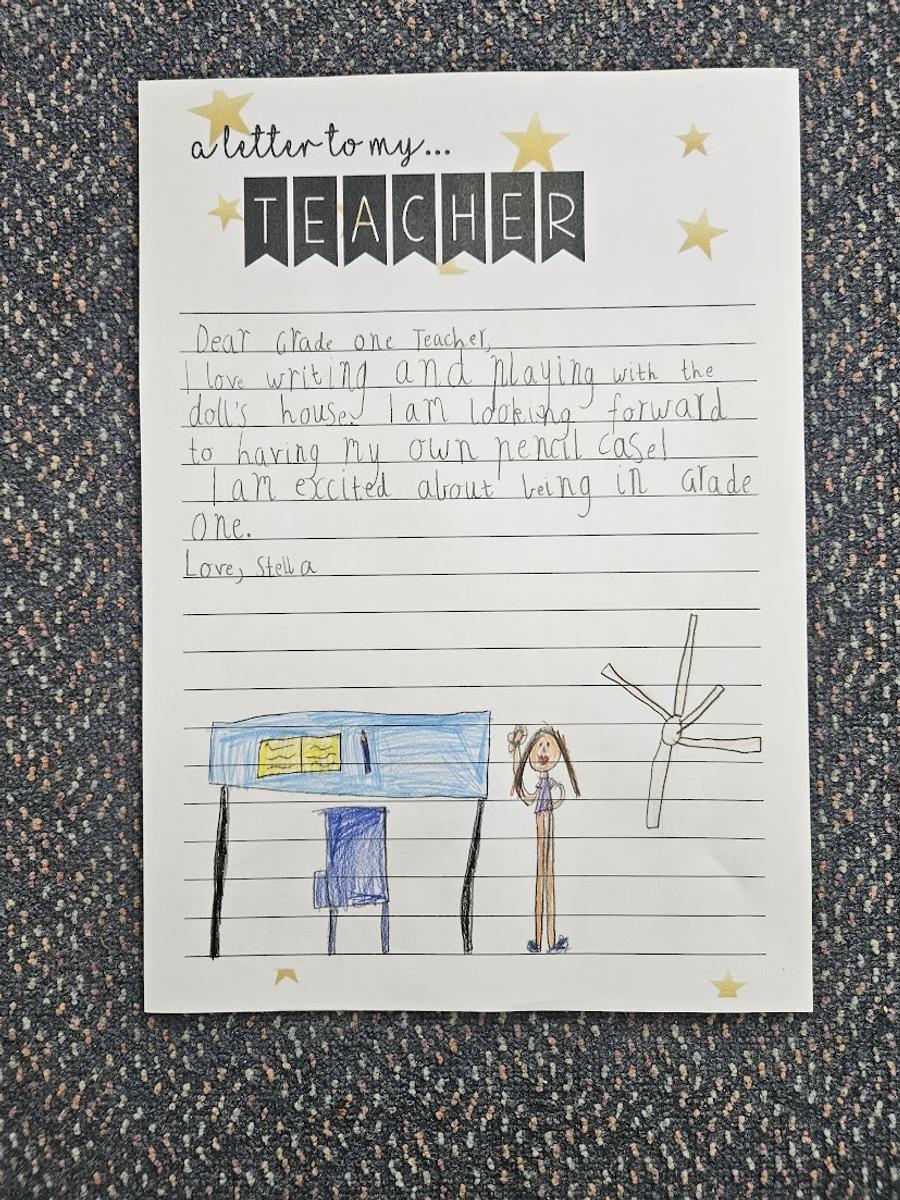 a letter to my...
TEACHER
Dear Grade one Teacher,
I love writing and playing with the
doll's house. I am looking forward
to having my own pencil case!
I am excited about being in Grade
one.
Love, Stella